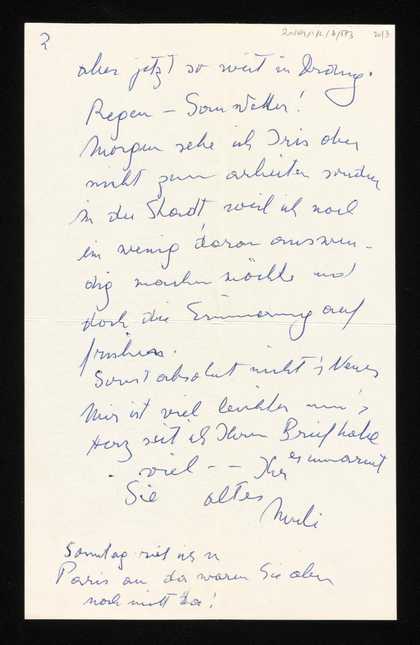 2
aber jetzt so weit in Ordng.
Regen – Sauwetter!
Morgen sehe ich Iris aber
nicht zum arbeiten sondern
in der Stadt weil ich noch
ein wenig daran auswen-
dig machen möchte und
doch die Erinnerung auf
frischen.
Sonst absolut nicht's Neues
Mir ist viel leichter um's
Herz seit ich Ihren Brief habe
viel – – Ihr
es umarmt
Sie altes
Sonntag rief ich in
Paris an da waren Sie aber
noch nicht da!